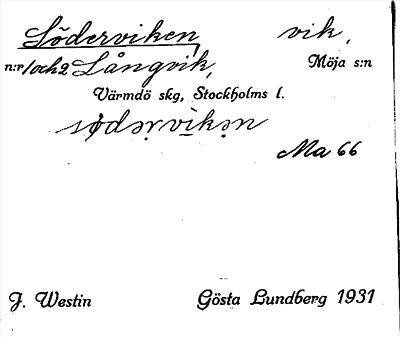 Söderviken vik,
n:r 1 och 2 Långvik, Möja s:n
Värmdö skg, Stockholms l.
sǿdərvikən
Ma 66
J. Westin Gösta Lundberg 1931